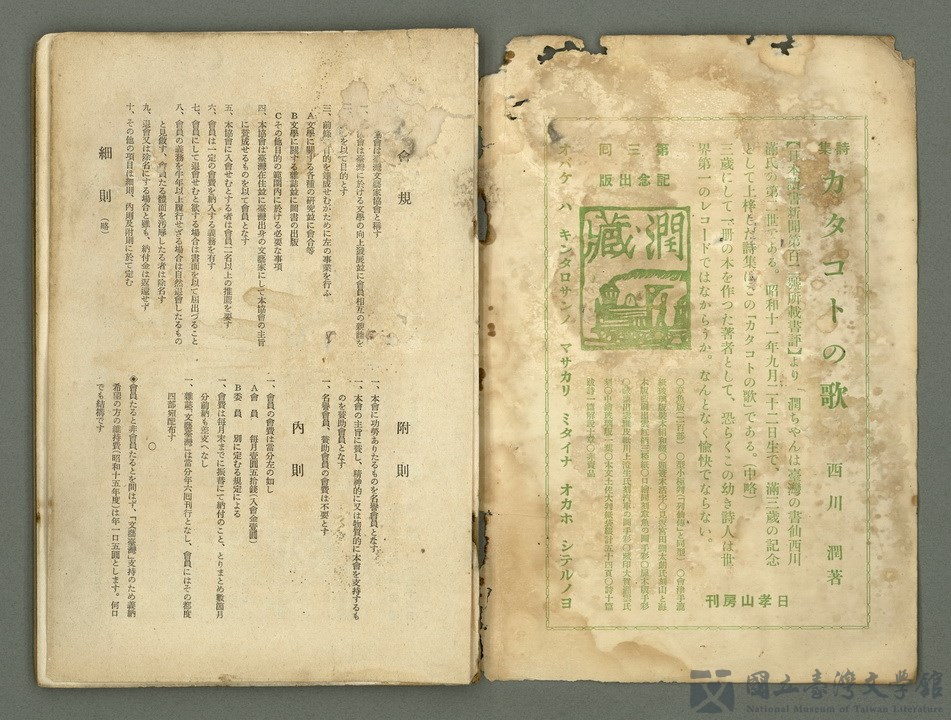 詩集 カタコトの歌 西川潤著
【日本讀書新聞第百三號所載書評】より 潤ちやんは臺灣の書仙西川
滿氏の第二世である。昭和十一年九月二十二日生で、滿三歲の記念
として上梓した詩集がこの「カタコトの歌」である。(中略)
三歲にして一冊の本を作つた著者として、恐らくこの幼き詩人は世
界第一のレコードではなからうか。なんとなく愉快でならない。
日孝山房刊
第三囘
記念出版
潤藏
オバケ ハ キンタロサンノ マサカリ ミタイナ オカホ シテルノヨ
會規
會は臺灣文藝家協會と稱す
會は臺灣に於ける文學の向上發展竝に會員相互の親睦を
を以て目的とす
三、前條の目的を達成せむがために左の事業を行ふ
A 文學に關する各種の研究竝に會合等
B 文學に關する雜誌竝に圖書の出版
C その他目的の範圍內に於ける必要な事項
四、本協會は臺灣在住竝に臺灣出身の文藝家にして本協會の主旨
に贊成せるものを以て會員となす
五、本協會に入會せむとする者は會員二名以上の推薦を要す
六、會員は一定の會費を納入する義務を有す
七、會員にして退會せむと欲する場合は書面を以て屆出づること
八、會員の義務を半年以上履行せざる場合は自然退會したるもの
と見做す、會員たる體面を汚辱したる者は除名す
九、退會又は除名にする場合と雖も、納付金は返還せず
十、その他の項目は細則、內則及附則に於て定む
細則(略)
附則
一、本會に功勞ありたるものを名譽會員となす。
一、本會の主旨に贊し、精神的に又は物質的に本會を支持するも
のを贊助會員となす
一、名譽會員、贊助會員の會費は不要とす
內則
一、會員の會費は當分左の如し
A 會員 每月壹圓五拾錢(入會金壹圓)
B 委員 別に定むる規定による
一、會費は每月末までに振替にて納付のこと、とりまとめ數箇月
分前納も差支へなし
一、雜誌「文藝臺灣」は當分年六囘刊行となし、會員にはその都度
四部宛配布す
○
◈會員たると非會員たるとを問はず、「文藝臺灣」支持のため義納
希望の方の維持費(昭和十五年度)は年一口五圓とします。何口
でも結構です
國立臺灣文學館
National Museum of Taiwan Literature